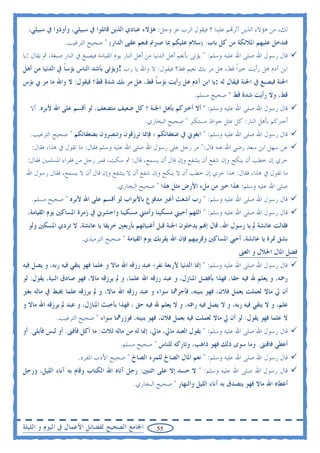 لك، من هؤلاء الذين آثرتهم علينا ؟ فيقول الرب عز وجل: هؤلاء عبادي الذين قاتلوا في سبيلي، وأوذوا في سبيلي،
فتدخل عليهم الملائكة من كل باب: {سلام عليكم بما صبرتم فنعم عقبى الدار} " صحيح الترغيب.
✓ قال رسول الله صلى الله عليه وسلم: " يؤتى بأنعم أهل الدنيا من أهل النار يوم القيامة فيصبغ في النار صبغة، ثم يقال: يا
ابن آدم هل رأيت خيراً قط، هل مر بك نعيم قط؟ فيقول: لا والله يا رب !ويؤتى بأشد الناس بؤساً في الدنيا من أهل
الجنة فيصبغ في الجنة فيقال له :يا ابن آدم هل رأيت بؤساً قط، هل مر بك شدة قط؟ فيقول: لا والله ما مر بي بؤس
قط، ولا رأيت شدة قط " صحيح مسلم.
✓ قال رسول الله صلى الله عليه وسلم: " ألا أخبركم بأهل الجنة ؟ كل ضعيف متضعف، لو أقسم على الله لأبره. ألا
أخبركم بأهل النار: كل عتل جواظ مستكبر " صحيح البخاري.
✓ قال رسول الله صلى الله عليه وسلم: " ابغوني في ضعفائكم ، فإنما ترزقون وتنصرون بضعفائكم " صحيح الترغيب.
✓ عن سهل ابن سعد رضي الله عنه قال: " مر رجل على رسول الله صلى الله عليه وسلم فقال: ما تقول في هذا، فقال:
حري إن خطب أن ينكح وإن شفع أن يشفع وإن قال أن يسمع، قال: ثم سكت، فمر رجل من فقراء المسلمين فقال:
ما تقول في هذا، فقال: هذا حري إن خطب أن لا ينكح وإن شفع أن لا يشفع وإن قال أن لا يسمع، فقال رسول الله
صلى الله عليه وسلم: هذا خير من ملء الأرض مثل هذا " صحيح البخاري.
✓ قال رسول الله صلى الله عليه وسلم: " رب أشعث أغبر مدفوع بالأبواب لو أقسم على الله لأبره " صحيح مسلم.
✓ قال رسول الله صلى الله عليه وسلم: " اللهم أحيني مسكينا وأمتني مسكينا واحشرني في زمرة المساكين يوم القيامة،
فقالت عائشة لم يا رسول الله، قال إنهم يدخلون الجنة قبل أغنيائهم بأربعين خريفا يا عائشة، لا تردي المسكين ولو
بشق تمرة يا عائشة، أحبي المساكين وقربيهم فإن الله يقربك يوم القيامة " صحيح الترمذي.
فضل المال الحلال و الغنى
✓ قال رسول الله صلى الله عليه وسلم: " إنما الدنيا لأربعة نفر: عبد رزقه الله مالا و علما فهو يتقي فيه ربه، و يصل فيه
رحمه، و يعلم لله فيه حقا، فهذا بأفضل المنازل. و عبد رزقه الله علما، و لم يرزقه مالا، فهو صادق النية، يقول: لو
أن لي مالا لعملت بعمل فلان، فهو بنيته، فأجرهما سواء. و عبد رزقه الله مالا، و لم يرزقه علما يخبط في ماله بغير
علم، و لا يتقي فيه ربه، و لا يصل فيه رحمه، و لا يعلم لله فيه حق ، فهذا بأخبث المنازل، و عبد لم يرزقه الله مالا و
لا علما فهو يقول: لو أن لي مالا لعملت فيه بعمل فلان، فهو بنيته، فوزرهما سواء " صحيح الترغيب.
✓ قال رسول الله صلى الله عليه وسلم: " يقول العبد مالي، مالي، إنما له من ماله ثلاث: ما أكل فأفنى. أو لبس فأبلى. أو
أعطى فاقتنى. وما سوى ذلك فهو ذاهب، وتاركه للناس " صحيح مسلم.
✓ قال رسول الله صلى الله عليه وسلم: " نعم المال الصالح للمرء الصالح " صحيح الأدب المفرد.
✓ قال رسول الله صلى الله عليه وسلم: " لا حسد إلا على اثنتين: رجل آتاه الله الكتاب وقام به آناء الليل، ورجل
أعطاه الله مالا فهو يتصدق به آناء الليل والنهار " صحيح البخاري.
55 الجامع الصحيح لفضائل الأعمال في اليوم و الليلة